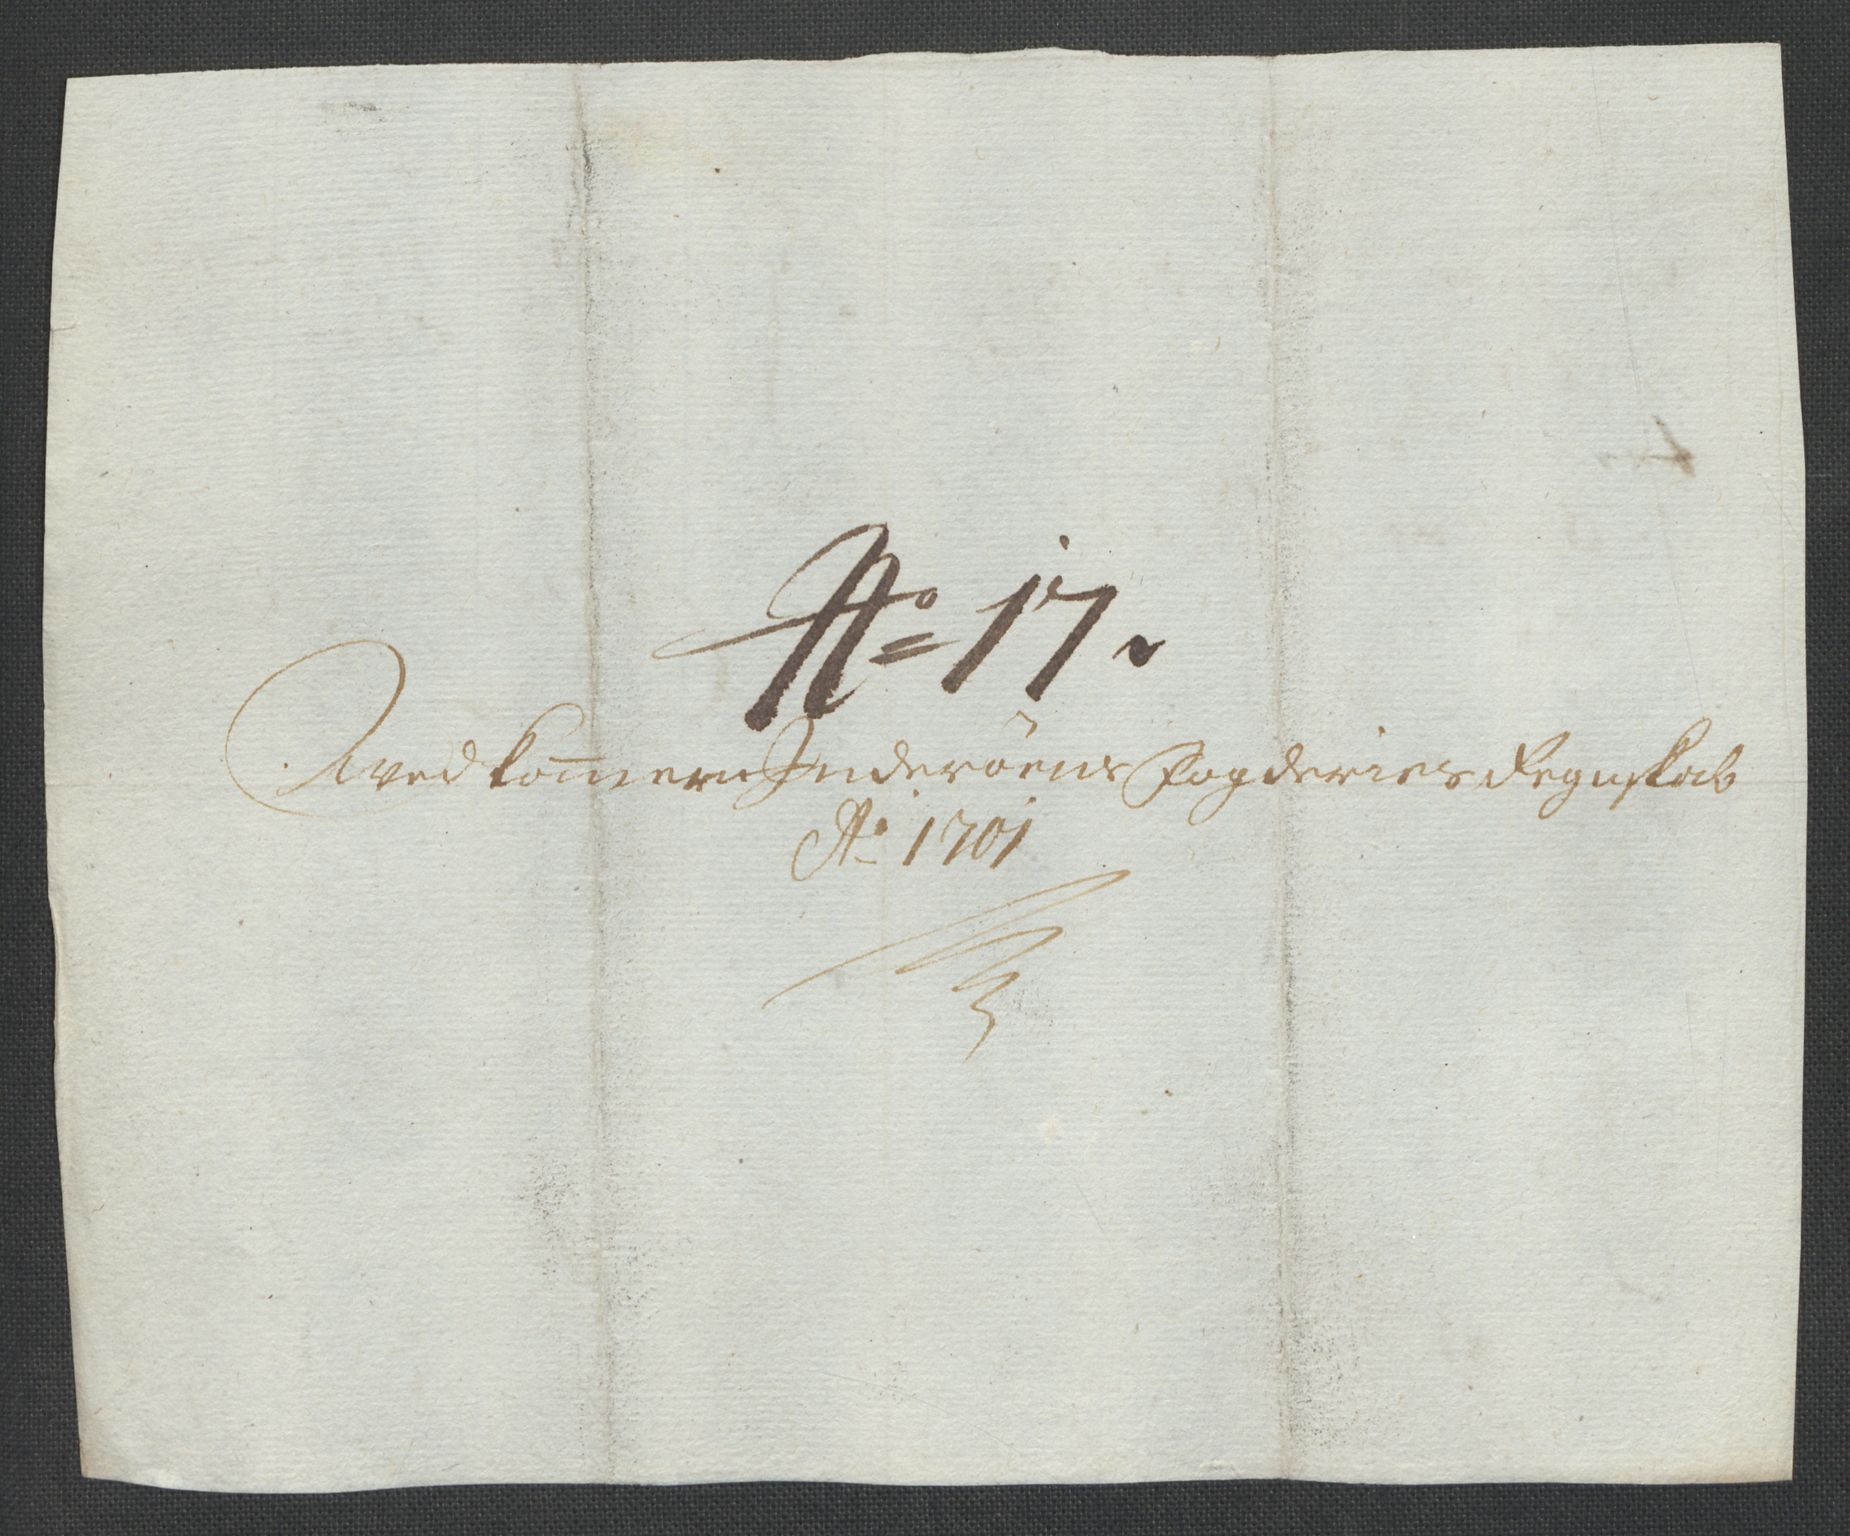 No: 17.
Vedkommer Inderöens Fogderies Regnskab
Ao 1701